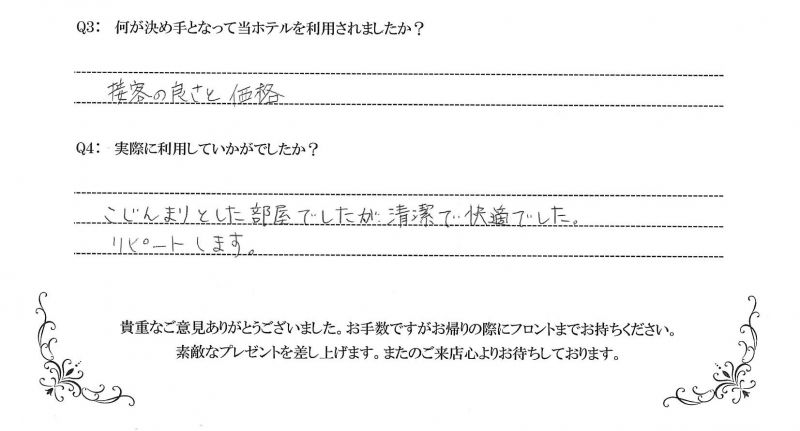 Q3: 何が決め手となって当ホテルを利用されましたか？
接客の良さと価格
Q4: 実際に利用していかがでしたか？
こじんまりとした部屋でしたが清潔で快適でした。
リピートします。
貴重なご意見ありがとうございました。お手数ですがお帰りの際にフロントまでお持ちください。
素敵なプレゼントを差し上げます。またのご来店心よりお待ちしております。